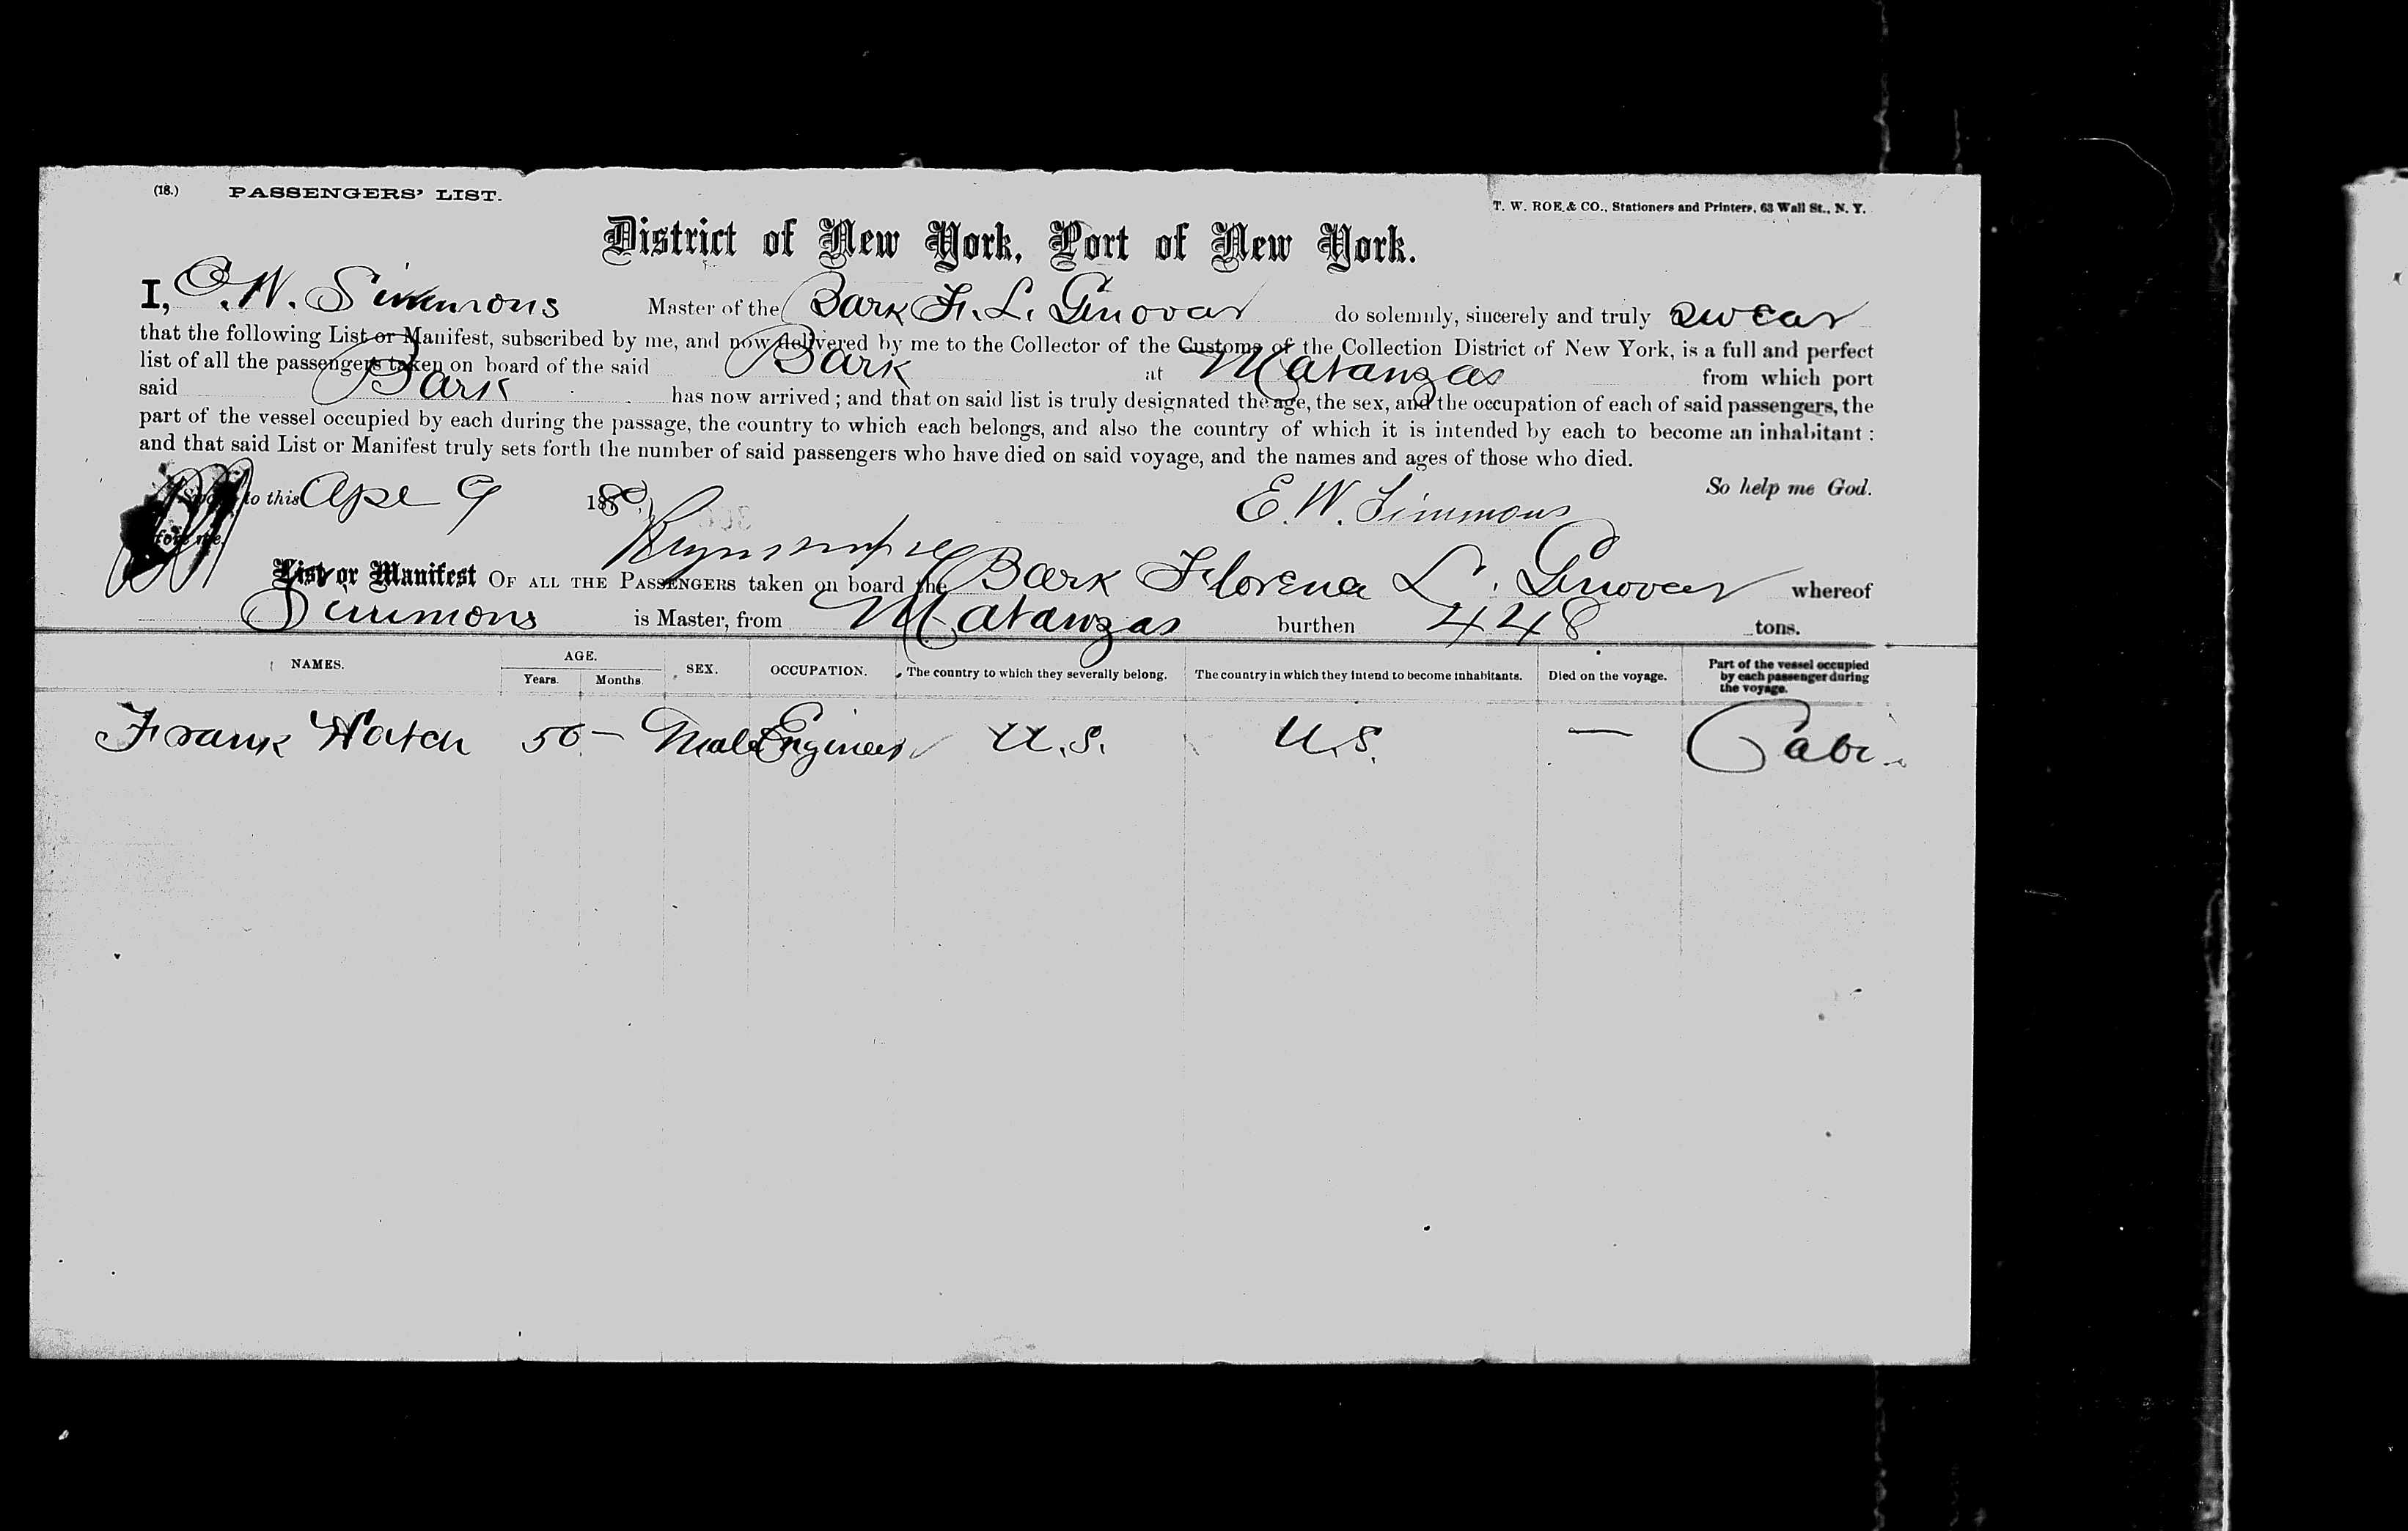 (18.) PASSENGERS' LIST.
T. W. ROE & CO., Stationers and Printers, 63 Wall St., N. Y.
District of New York, Port of New York.
I, E. W. Simmons Master of the Bark F. L. Genovar do solemnly, sincerely and truly swear
that the following List or Manifest, subscribed by me, and now delivered by me to the Collector of the Customs of the Collection District of New York, is a full and perfect
list of all the passengers taken on board of the said Bark at Matanzas from which port
said Bark has now arrived; and that on said list is truly designated the age, the sex, and the occupation of each of said passengers, the
part of the vessel occupied by each during the passage, the country to which each belongs, and also the country of which it is intended by each to become an inhabitant:
and that said List or Manifest truly sets forth the number of said passengers who have died on said voyage, and the names and ages of those who died.
So help me God.
to this Apl 9 1880
E. W. Simmons
fore me.
List or Manifest OF ALL THE PASSENGERS taken on board the Bark Florena L. Genovar whereof
Simmons is Master, from Matanzas burthen 448 tons.
NAMES. AGE. Years. Months. SEX. OCCUPATION. The country to which they severally belong. The country in which they intend to become inhabitants. Died on the voyage. Part of the vessel occupied by each passenger during the voyage.
Frank Hatch 50 — Male Engineer U.S. U.S. — Cabi